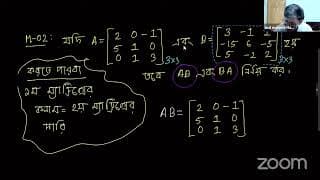 M-02: যদি A = [2 0 -1
5 1 0
0 1 3]3×3 এবং B = [3 -1 1
-15 6 -5
5 -1 2]3×3 হয়
তবে AB এবং BA নির্ণয় কর
১ম ম্যাট্রিক্সের
কলাম = ২য় ম্যাট্রিক্সের
সারি
AB = [2 0 -1
5 1 0
0 1 3]
zoom